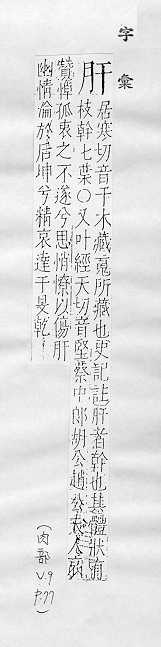 字彙
肝 居寒切音干木藏䰟所藏也史記註肝者幹也其體狀有
枝幹七葉○又叶經天切音堅蔡中郎胡公趙
贊悼孤衷之不遂兮思悄憭以傷肝
幽情淪於后坤兮精哀達于昊乾
(肉部 V.9 P.77)